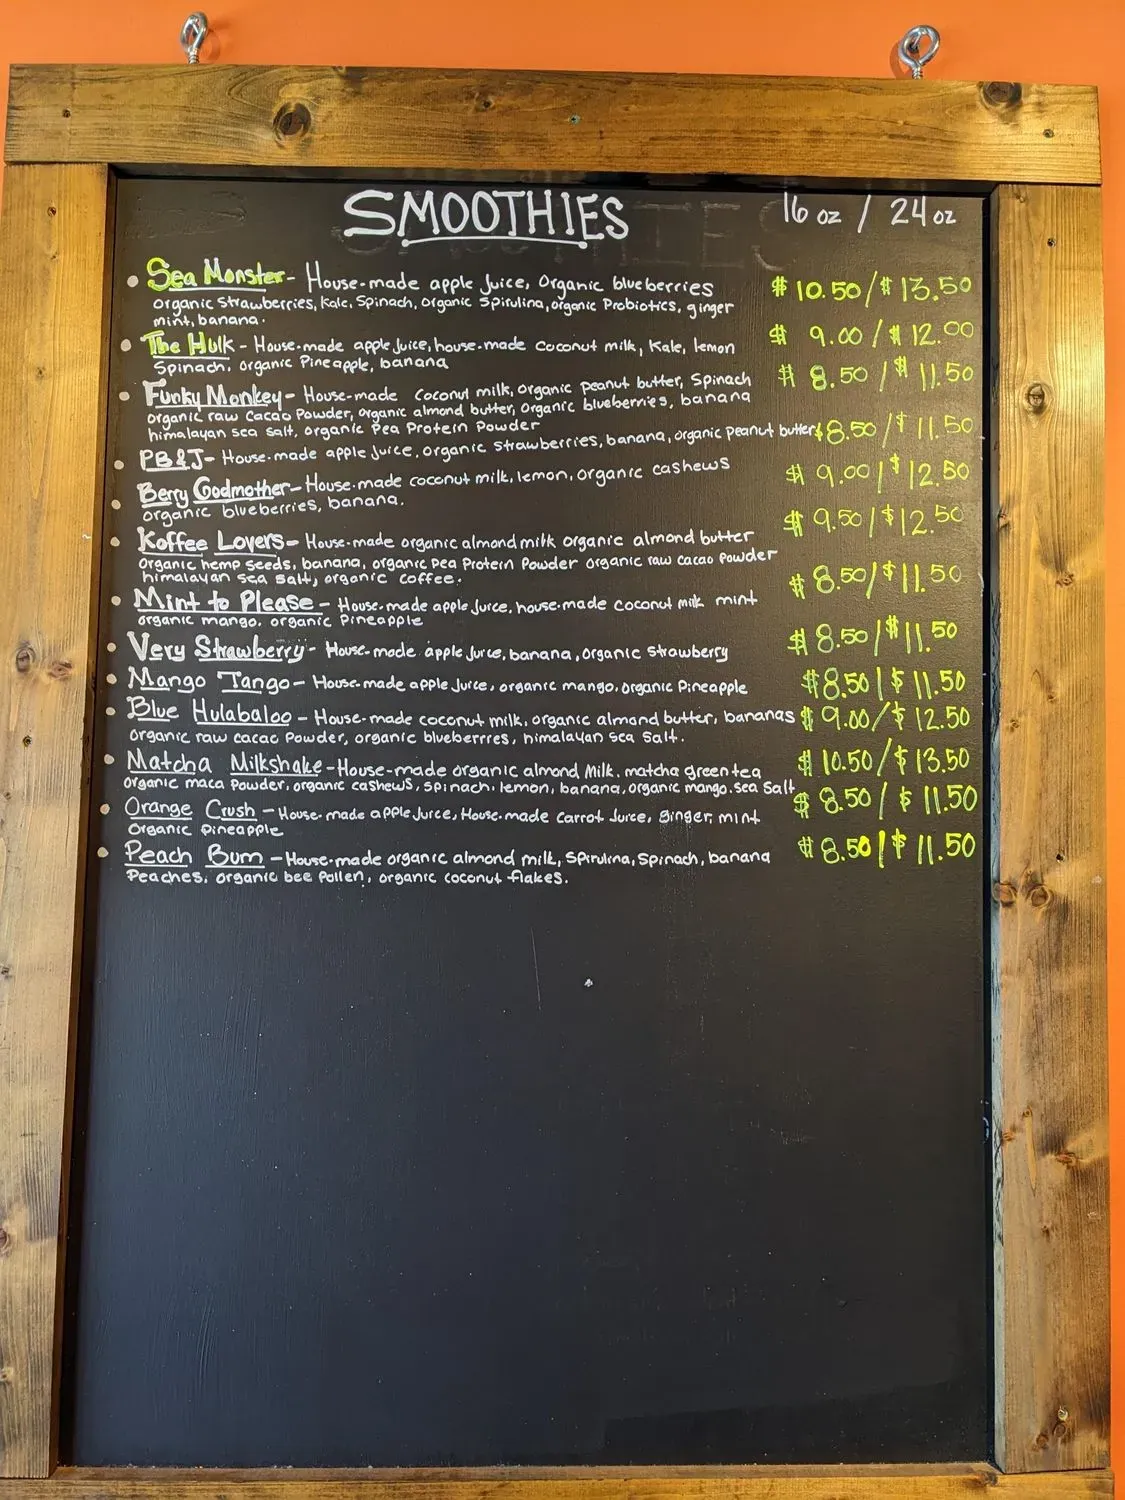 SMOOTHIES 16 oz / 24 oz
• Sea Monster - House-made apple Juice, Organic blueberries $10.50/$13.50
organic Strawberries, Kale, Spinach, organic Spirulina, organic Probiotics, ginger
mint, banana.
• The Hulk - House-made apple juice, house-made coconut milk, Kale, lemon $ 9.00 / $ 12.00
Spinach, organic Pineapple, banana
• Funky Monkey - House-made coconut milk, organic peanut butter, Spinach $ 8.50 / $ 11.50
organic raw cacao Powder, organic almond butter, organic blueberries, banana
himalayan sea salt, organic Pea Protein Powder
• PB&J - House-made apple juice, organic strawberries, banana, organic peanut butter $8.50 / $ 11.50
• Berry Godmother - House-made coconut milk, lemon, organic cashews $ 9.00/$12.50
organic blueberries, banana.
• Koffee Lovers - House-made organic almond milk organic almond butter $ 9.50 / $12.50
Organic hemp seeds, banana, organic pea Protein Powder organic raw cacao Powder
himalayan sea salt, organic coffee.
• Mint to Please - House-made apple juice, house-made coconut milk mint $ 8.50/$11.50
organic mango, organic Pineapple
• Very Strawberry - House-made apple juice, banana, organic Strawberry $ 8.50/$11.50
• Mango Tango - House-made apple juice, organic mango, organic Pineapple $8.50 / $ 11.50
• Blue Hulabaloo - House-made coconut milk, organic almond butter, bananas $ 9.00/$ 12.50
organic raw cacao Powder, organic blueberries, himalayan sea salt.
• Matcha Milkshake - House-made organic almond Milk, matcha green tea $ 10.50/$ 13.50
organic maca powder, organic cashews, spinach, lemon, banana, organic mango. sea Salt
• Orange Crush - House-made apple juice, House-made carrot juice, ginger, mint $ 8.50 / $ 11.50
Organic Pineapple
• Peach Bum - House-made organic almond milk, Spirulina, Spinach, banana $ 8.50 / $ 11.50
Peaches, organic bee Pollen, organic coconut flakes.